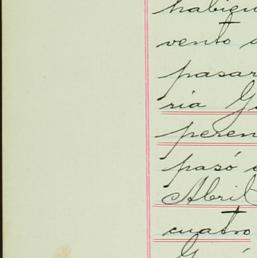 habien
vento
pasar
ria G
peren
pasó
Abril
cuatro